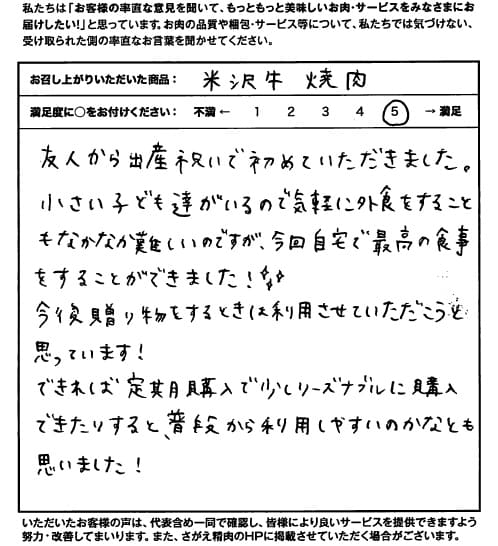 私たちは「お客様の率直な意見を聞いて、もっともっと美味しいお肉・サービスをみなさまにお
届けしたい!」と思っています。お肉の品質や梱包・サービス等について、私たちでは気づけない、
受け取られた側の率直なお言葉を聞かせてください。
お召し上がりいただいた商品： 米沢牛 焼肉
満足度に○をお付けください： 不満 ← 1 2 3 4 5 → 満足
友人から出産祝いで初めていただきました。
小さい子ども達がいるので気軽に外食をすること
もなかなか難しいのですが、今回自宅で最高の食事
をすることができました!
今後贈り物をするときは利用させていただこうと
思っています!
できれば定期購入で少しリーズナブルに購入
できたりすると、普段から利用しやすいのかなとも
思いました!
いただいたお客様の声は、代表含め一同で確認し、皆様により良いサービスを提供できますよう
努力・改善してまいります。また、さがえ精肉のHPに掲載させていただく場合がございます。